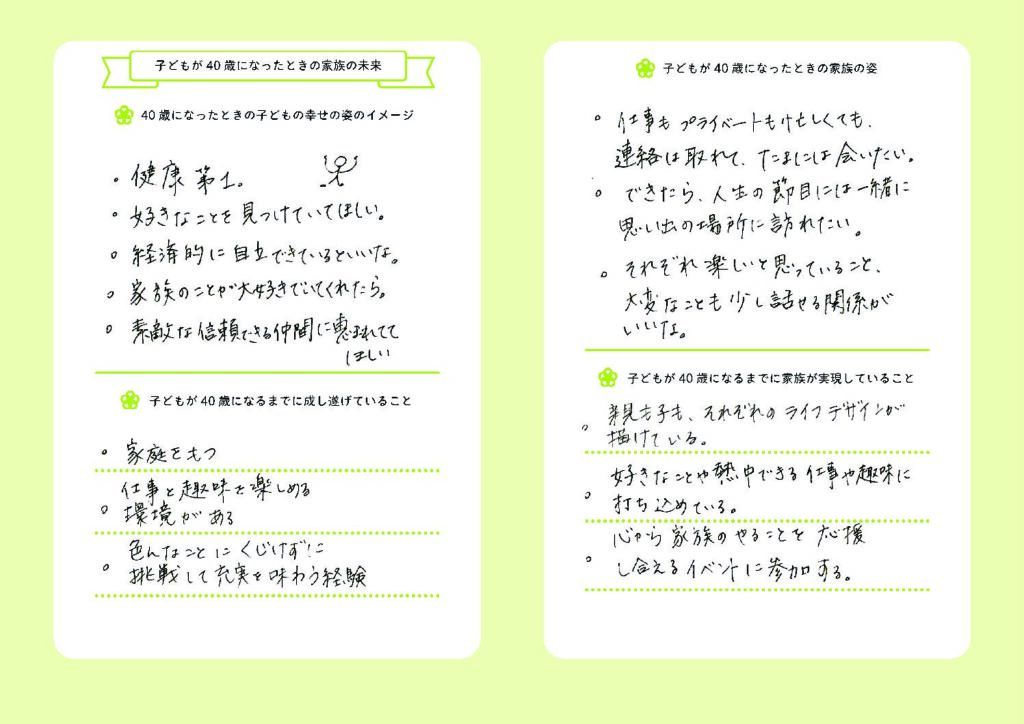 子どもが40歳になったときの家族の未来
40歳になったときの子どもの幸せの姿のイメージ
・健康第1。
。好きなことを見つけていてほしい。
。経済的に自立できているといいな。
。家族のことが大好きでいてくれたら。
。素敵な信頼できる仲間に恵まれてて
ほしい
子どもが40歳になるまでに成し遂げていること
。家庭をもつ
仕事と趣味を楽しめる
。環境がある
色んなことにくじけずに
。挑戦して充実を味わう経験
子どもが40歳になったときの家族の姿
。仕事もプライベートも忙しくても、
連絡は取れて、たまには会いたい。
。できたら、人生の節目には一緒に
思い出の場所に訪れたい。
。それぞれ楽しいと思っていること、
大変なことも少し話せる関係が
いいな。
子どもが40歳になるまでに家族が実現していること
親も子も、それぞれのライフデザインが
。描けている。
好きなことや熱中できる仕事や趣味に
。打ち込めている。
心から家族のやることを応援
。し合えるイベントに参加する。